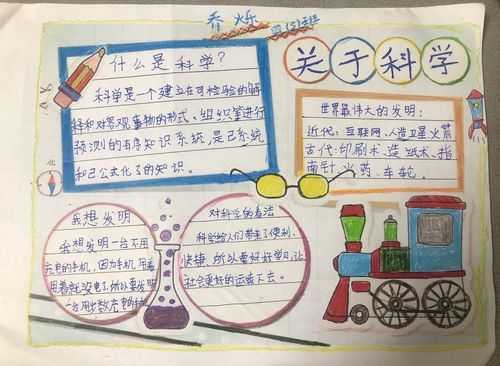 乔烁 四(5)班
关于科学
什么是科学？
科学是一个建立在可检验的解
释和对客观事物的形式、组织等进行
预测的有序知识系统，是已系统
和已公式化了的知识。
世界最伟大的发明：
近代：互联网、人造卫星火箭
古代：印刷术、造纸术、指
南针、火药、车轮。
我想发明
我想发明一台不用
充电的手机，因为手机用着
用着就没电了，所以我要发明
一台用
对科学的看法
科学给人们带来了便利、
快捷，所以要好好学习，让
社会更好的运转下去。